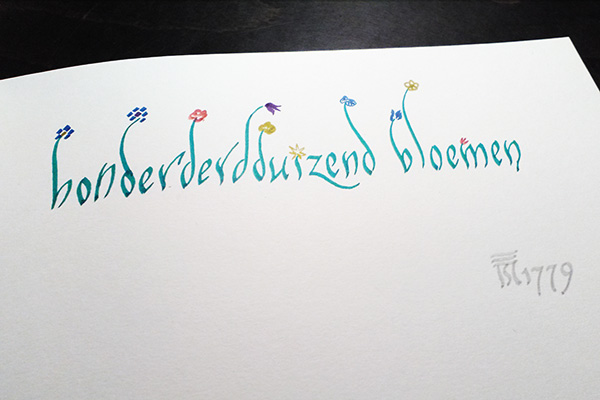 honderderdduizend bloemen
BL1779